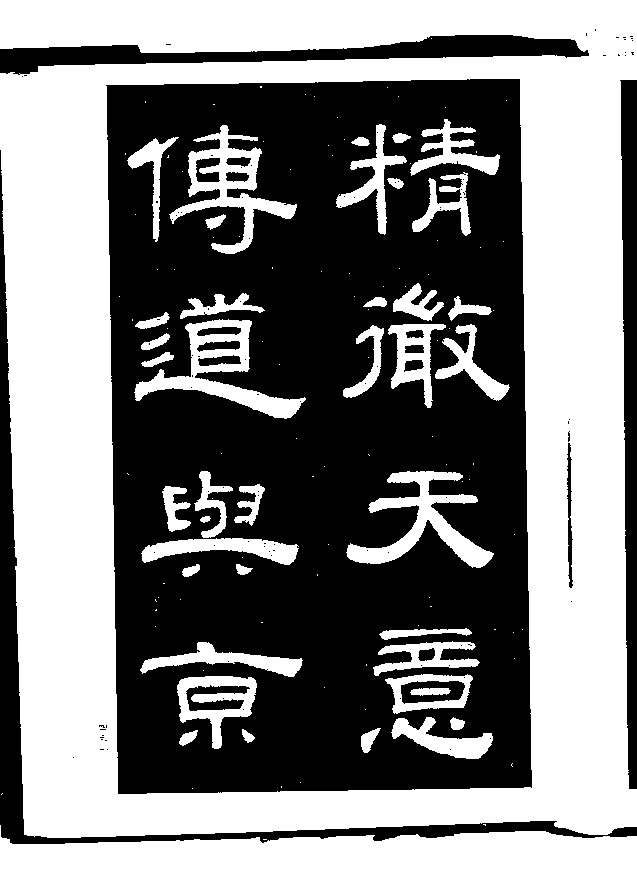 精微天意
傳道與京